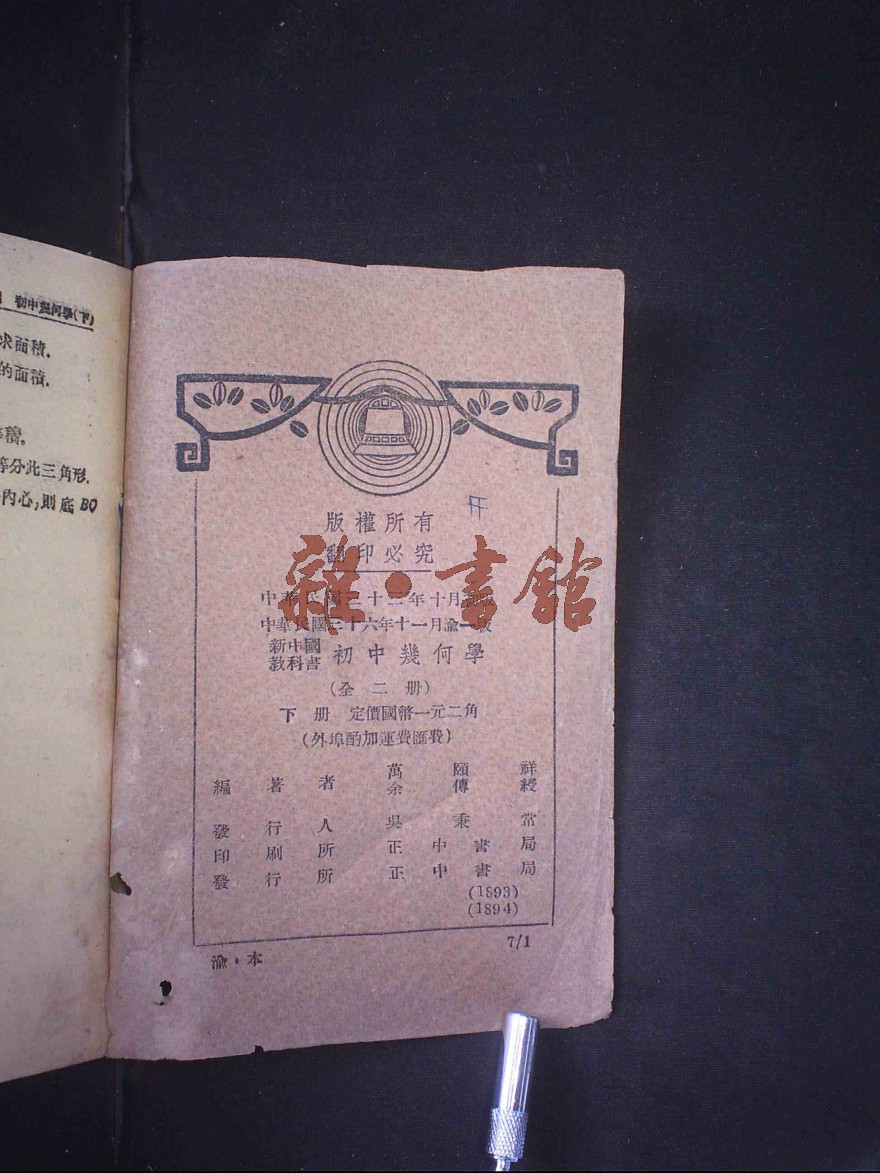 初中幾何學(下)
求面積.
的面積.
等分此三角形.
內心,則底 BC
版權所有
翻印必究
雜·書館
中華民國三十三年十月初版
中華民國三十六年十一月渝一版
新中國
教科書 初中幾何學
(全二册)
下册 定價國幣一元二角
(外埠酌加運費匯費)
編著者 萬頤祥
余傳綬
發行人 吳秉常
印刷所 正中書局
發行所 正中書局
(1893)
(1894)
7/1
渝·本